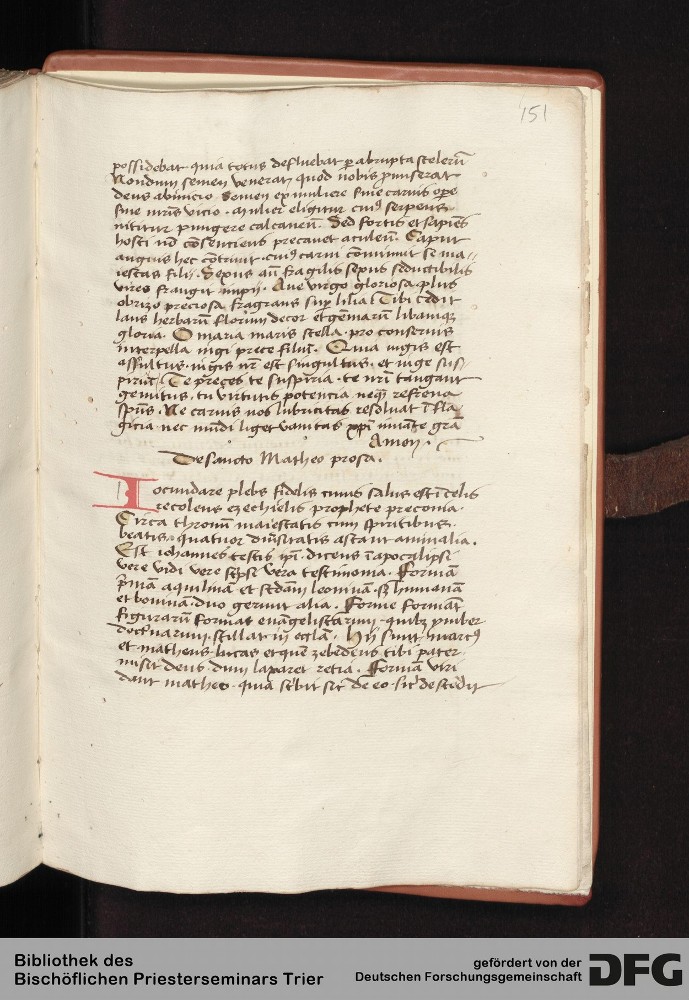 151
possidebat · quia totus defluebat p abrupta scelerū
Nondum semen venerat quod nobis pmiserat
deus ab inicio · Semen ex muliere sine carnis ope
sine viri vicio · Mulier eligitur cuiꝰ serpens
nititur pungere calcaneū · Sed fortis et sapiēs
hosti nō cōsenciens precauet aculeū · Caput
anguis hec cōtriuit · cuiꝰ carni cōiunxit se ma//
iestas filij · Sexus aūt fragilis sexus seductibilis
vires frangit impij · Aue virgo gloriosa plus
obrizo preciosa fragrans sup lilia Tibi cedit
laus herbarū florum decor et gēmarū libamiqꝫ
gloria · O maria maris stella · pro conseruis
interpella iugi prece filiū · Quia iugis est
assultus · iugis nr̄ est singultus · et iuge sus//
piriū · Te preces te suspiria · te nr̄i tangant
gemitus · tu virtutis potencia neqꝫ refrena
sp̄us · Ne carnis nos lubricitas resoluat ī fla
gicia nec mūdi liget vanitas xp̄i iuuāte grā
Amen ·
De sancto Matheo prosa ·
Iocundare plebs fidelis cuius salus est ī celis
recolens ezechielis prophete preconia ·
Circa thronū maiestatis cum spiritibus ·
beatis · quatuor diūsitatis astant animalia ·
Est iohannes testis ip̄i · dicens ī apocalipsi
vere vidi vere scpsi vera testimonia · Formā
p̄mā aquilinā et scdam leoninā · sꝫ humanā
et bouinā · duo gerunt alia · Forme formāt
figurarū formas euangelistarum · quibꝫ ymber
doctnarum · stillat in ecclā · Hij sunt marcꝰ
et matheus · lucas et quē zebedeus tibi pater
misit deus dum laxaret retia · Formā viri
dant matheo · quia scbit sic de eo · sic̄ descēdit
Bibliothek des
Bischöflichen Priesterseminars Trier
gefördert von der
Deutschen Forschungsgemeinschaft
DFG